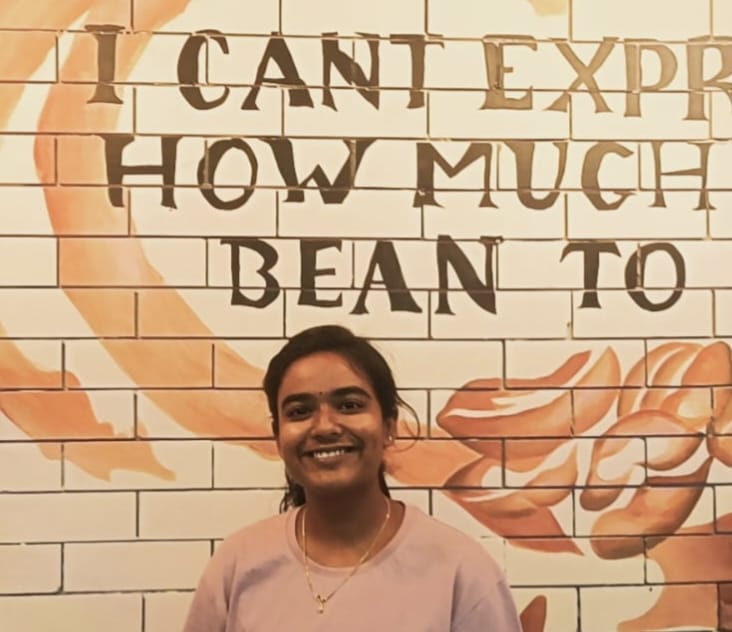 I CANT EXPR
HOW MUGH
BEAN TO